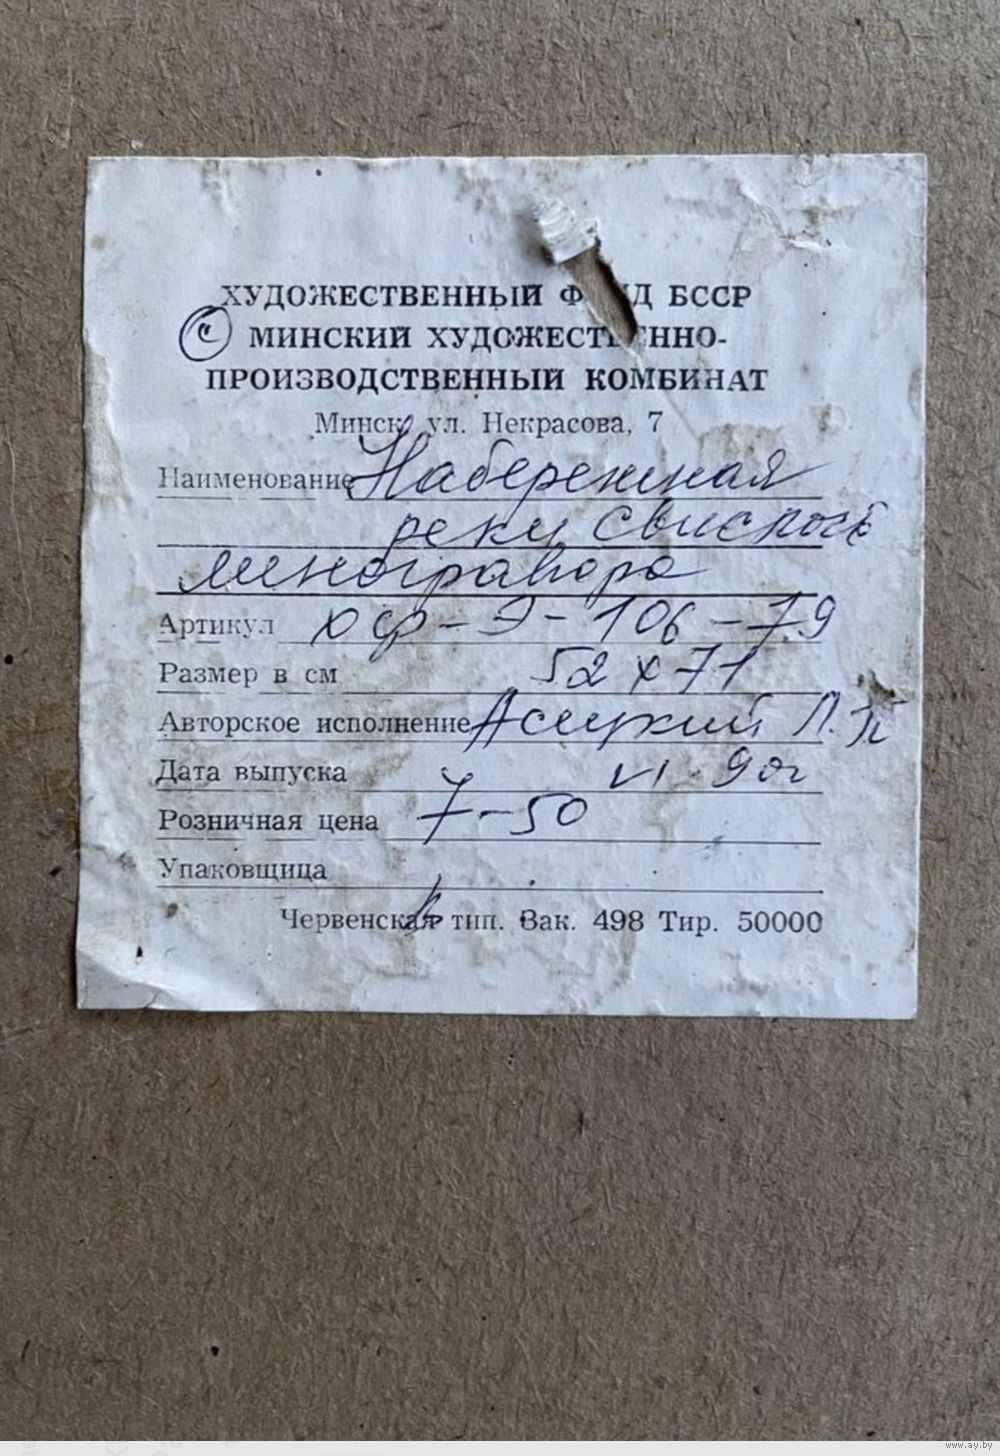 ХУДОЖЕСТВЕННЫЙ Ф НД БССР
МИНСКИЙ ХУДОЖЕСТВЕННО-
ПРОИЗВОДСТВЕННЫЙ КОМБИНАТ
Минск, ул. Некрасова, 7
Наименование Набережная
реки Свислочь
линогравюра
Артикул ХФ-Э-106-79
Размер в см 52 х 71
Авторское исполнение Асецкий Л. П
Дата выпуска VI 90г
Розничная цена 7-50
Упаковщица
Червенская тип. Зак. 498 Тир. 50000
www.ay.by